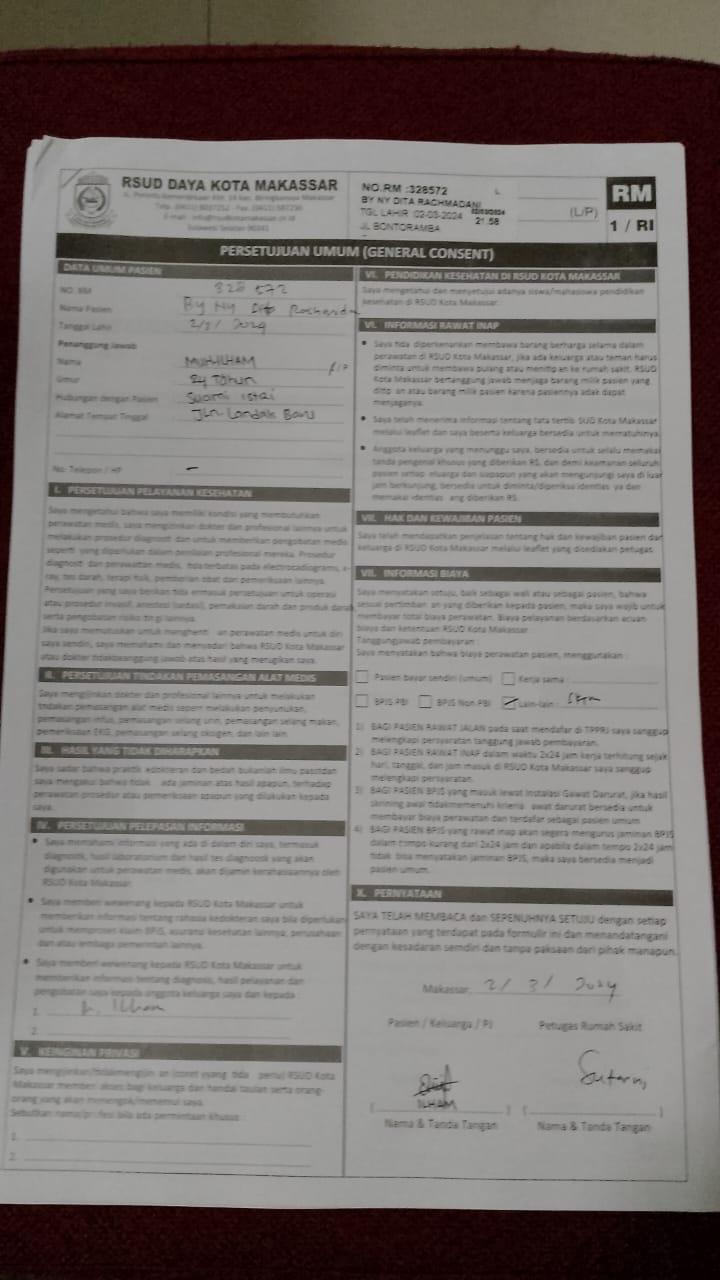 RSUD DAYA KOTA MAKASSAR
NO.RM :328572
BY NY DITA RACHMADANI
TGL LAHIR :02-03-2024
21:58
JL BONTORAMBA
(L/P)
RM
1 / RI
PERSETUJUAN UMUM (GENERAL CONSENT)
DATA UMUM PASIEN
NO. RM 328 572
Nama Pasien By Ny Dita
Tanggal Lahir
Penanggung Jawab
Nama MUH.ILHAM
Umur 24 Tahun
Hubungan dengan Pasien Suami istri
Alamat Tempat Tinggal Jln. Landak Baru
No. Telepon / HP –
I. PERSETUJUAN PELAYANAN KESEHATAN
Saya mengetahui bahwa saya memiliki kondisi yang membutuhkan
perawatan medis, saya mengizinkan dokter dan profesional lainnya untuk
melakukan prosedur diagnostik dan untuk memberikan pengobatan medis
seperti yang diperlukan dalam penilaian profesional mereka. Prosedur
diagnostik dan perawatan medis, tidak terbatas pada
Persetujuan yang saya berikan tidak termasuk persetujuan untuk
atau prosedur invasif, anestesi (sedasi), pemakaian darah dan produk darah
serta pengobatan risiko tinggi lainnya.
Jika saya memutuskan untuk menghenti an perawatan medis untuk diri
saya sendiri, saya memahami dan menyadari bahwa RSUD Kota Makassar
atau dokter tidak bertanggung jawab atas hasil yang merugikan saya.
II. PERSETUJUAN TINDAKAN PEMASANGAN ALAT MEDIS
Saya mengijinkan dokter dan profesional lainnya untuk melakukan
tindakan pemasangan alat medis seperti melakukan penyuntikan,
pemasangan infus, pemasangan selang urin, pemasangan selang makan,
pemeriksaan EKG, pemasangan selang oksigen, dan lain lain.
III. HASIL YANG TIDAK DIHARAPKAN
Saya sadar bahwa praktik kedokteran dan bedah bukanlah ilmu pasti dan
saya mengakui bahwa tidak ada jaminan atas hasil apapun, terhadap
perawatan prosedur atau pemeriksaan apapun yang dilakukan kepada
saya.
IV. PERSETUJUAN PELEPASAN INFORMASI
• Saya memahami informasi yang ada di dalam diri saya, termasuk
diagnostik, hasil laboratorium dan hasil tes diagnostik yang akan
digunakan untuk perawatan medis, akan dijamin kerahasiaannya oleh
RSUD Kota Makassar.
• Saya memberi wewenang kepada RSUD Kota Makassar untuk
memberikan informasi tentang rahasia kedokteran saya bila diperlukan
untuk memproses klaim BPJS, asuransi kesehatan lainnya, perusahaan
dan atau lembaga pemerintah lainnya.
• Saya memberi wewenang kepada RSUD Kota Makassar untuk
memberikan informasi tentang diagnosis, hasil pelayanan dan
pengobatan saya kepada anggota keluarga saya dan kepada :
1. Ilham
2.
V. KEINGINAN PRIVASI
Makassar memberi akses bagi keluarga dan handai taulan serta orang-
orang yang akan menengok/menemui saya.
1.
2.
VI. PENDIDIKAN KESEHATAN DI RSUD KOTA MAKASSAR
Saya mengetahui dan menyetujui adanya siswa/mahasiswa pendidikan
kesehatan di RSUD Kota Makassar.
VI. INFORMASI RAWAT INAP
• Saya tidak diperkenankan membawa barang berharga selama dalam
perawatan di RSUD Kota Makassar, jika ada keluarga atau teman harus
diminta untuk membawa pulang atau menitip an ke rumah sakit. RSUD
Kota Makassar bertanggung jawab menjaga barang milik pasien yang
ditip an atau barang milik pasien karena pasiennya adak dapat
menjaganya.
• Saya telah menerima informasi tentang tata tertib SUD Kota Makassar
melalui leaflet dan saya beserta keluarga bersedia untuk mematuhinya.
• Anggota keluarga yang menunggu saya, bersedia untuk selalu memakai
tanda pengenal khusus yang diberikan RS, dan demi keamanan seluruh
pasien setiap eluarga dan siapapun yang akan mengunjungi saya di luar
jam berkunjung, bersedia untuk diminta/diperiksa identias ya dan
memakai identias ang diberikan RS.
VII. HAK DAN KEWAJIBAN PASIEN
Saya telah mendapatkan penjelasan tentang hak dan kewajiban pasien dan
keluarga di RSUD Kota Makassar melalui leaflet yang disediakan petugas.
VII. INFORMASI BIAYA
Saya menyatakan setuju, baik sebagai wali atau sebagai pasien, bahwa
sesuai pertimban an yang diberikan kepada pasien, maka saya wajib untuk
membayar total biaya perawatan. Biaya pelayanan berdasarkan acuan
biaya dan ketentuan RSUD Kota Makassar
Tanggungjawab pembayaran :
Saya menyatakan bahwa biaya perawatan pasien, menggunakan :
Pasien bayar sendiri (umum)
Kerja sama :
BPJS PBI
BPJS Non PBI
Lain-lain :
1) BAGI PASIEN RAWAT JALAN pada saat mendafar di TPPRJ saya sanggup
melengkapi persyaratan tanggung jawab pembayaran.
2) BAGI PASIEN RAWAT INAP dalam waktu 2x24 jam kerja terhitung sejak
hari, tanggal, dan jam masuk di RSUD Kota Makassar saya sanggup
melengkapi persyaratan.
3) BAGI PASIEN BPJS yang masuk lewat Instalasi Gawat Darurat, jika hasil
skrining awal tidakmemenuhi krieria awat darurat bersedia untuk
membayar biaya perawatan dan terdafar sebagai pasien umum
4) BAGI PASIEN BPJS yang rawat inap akan segera mengurus jaminan BPJS
dalam tempo kurang dari 2x24 jam dan apabila dalam tempo 2x24 jam
tidak bisa menyatakan jaminan BPJS, maka saya bersedia menjadi
pasien umum.
X. PERNYATAAN
SAYA TELAH MEMBACA dan SEPENUHNYA SETUJU dengan setiap
pernyataan yang terdapat pada formulir ini dan menandatangani
dengan kesadaran sendiri dan tanpa paksaan dari pihak manapun.
Makassar, 2 / 3 / 2024
Pasien / Keluarga / PJ
Petugas Rumah Sakit
ILHAM
Sutarni
Nama & Tanda Tangan
Nama & Tanda Tangan